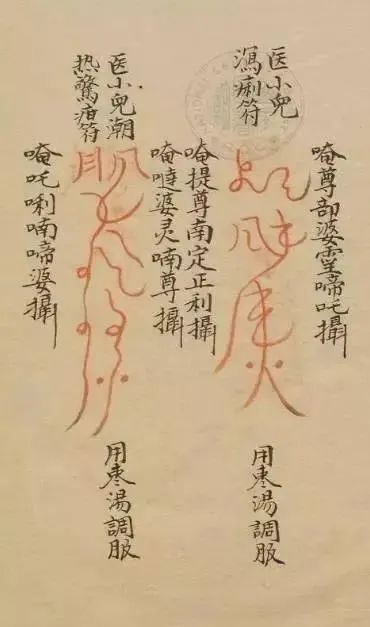 唵尊部婆霊啼吒攝
医小兒
瀉痢符
用枣湯調服
唵提尊南定正利攝
唵噠婆灵喃尊攝
医小兒潮
热驚疳符
用枣湯調服
唵吒唎喃啼婆攝